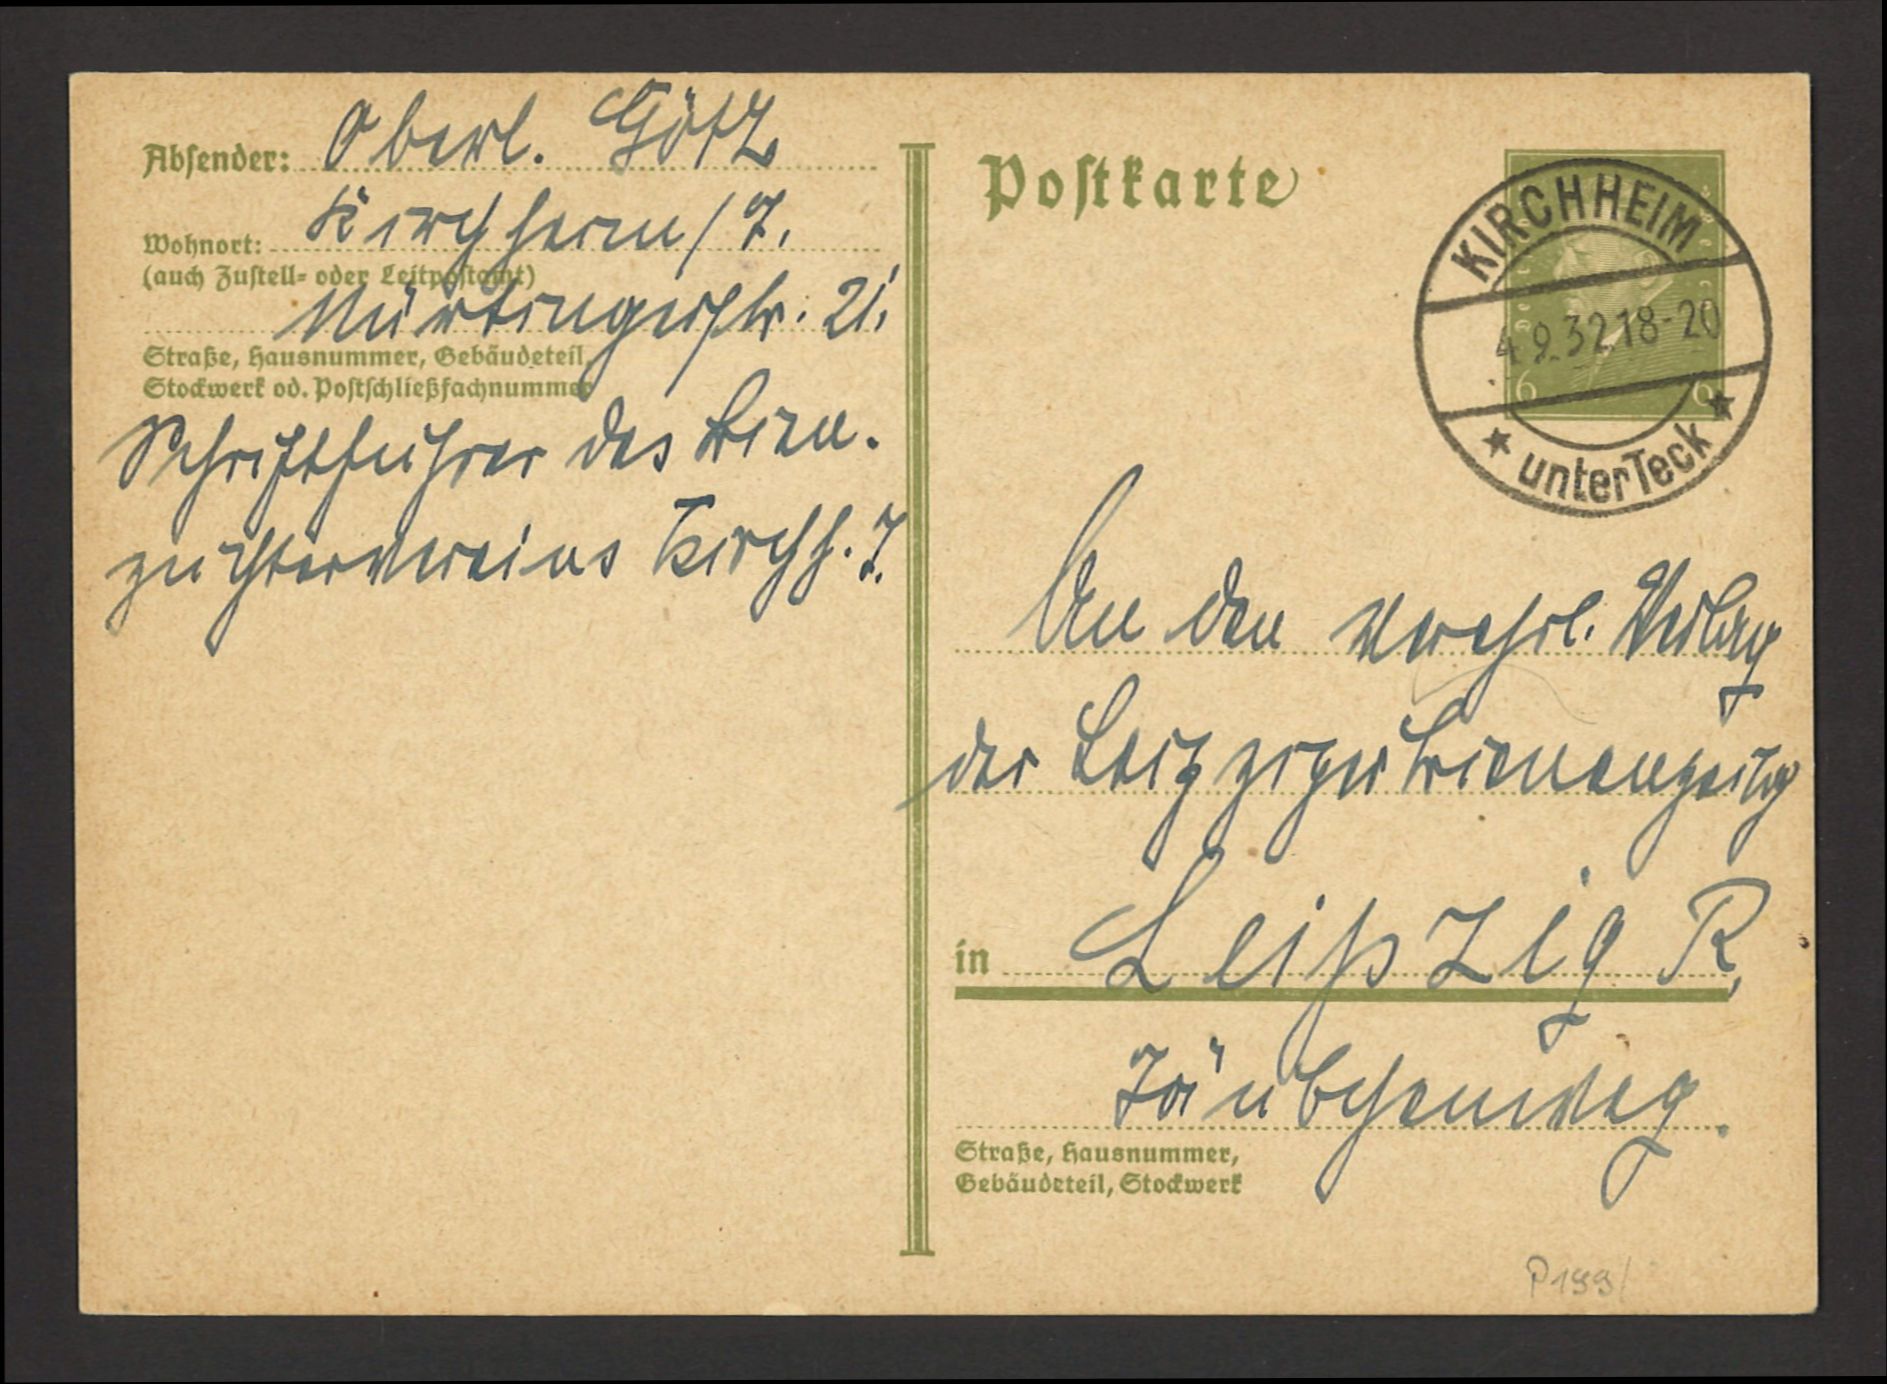 Absender: Oberl. Götz
Wohnort: Kirchheim/T.
(auch Zustell- oder Leitpostamt)
Nürtingerstr. 21.
Straße, Hausnummer, Gebäudeteil,
Stockwerk od. Postschließfachnummer
Schriftführer des Bien.
züchtervereins Kirchh. T.
Postkarte
KIRCHHEIM
4.9.32.18-20
6 6
unter Teck
An den verehrl. Verlag
der Leipziger Bienenzeitg
in Leipzig R,
Täubchenweg.
Straße, Hausnummer,
Gebäudeteil, Stockwerk
P199/